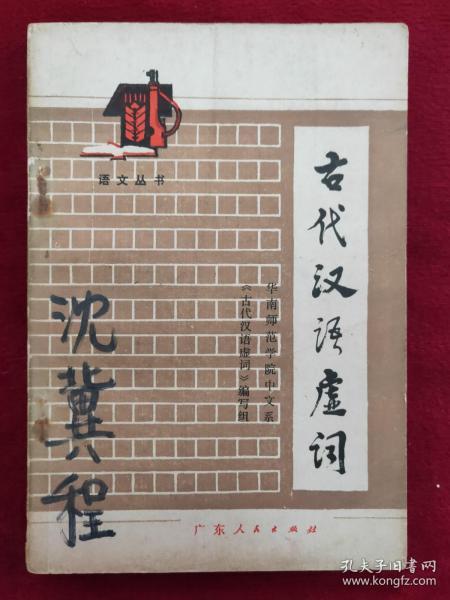 语文丛书
古代汉语虚词
华南师范学院中文系
《古代汉语虚词》编写组
沈冀程
广东人民出版社
孔夫子旧书网
www.kongfz.com